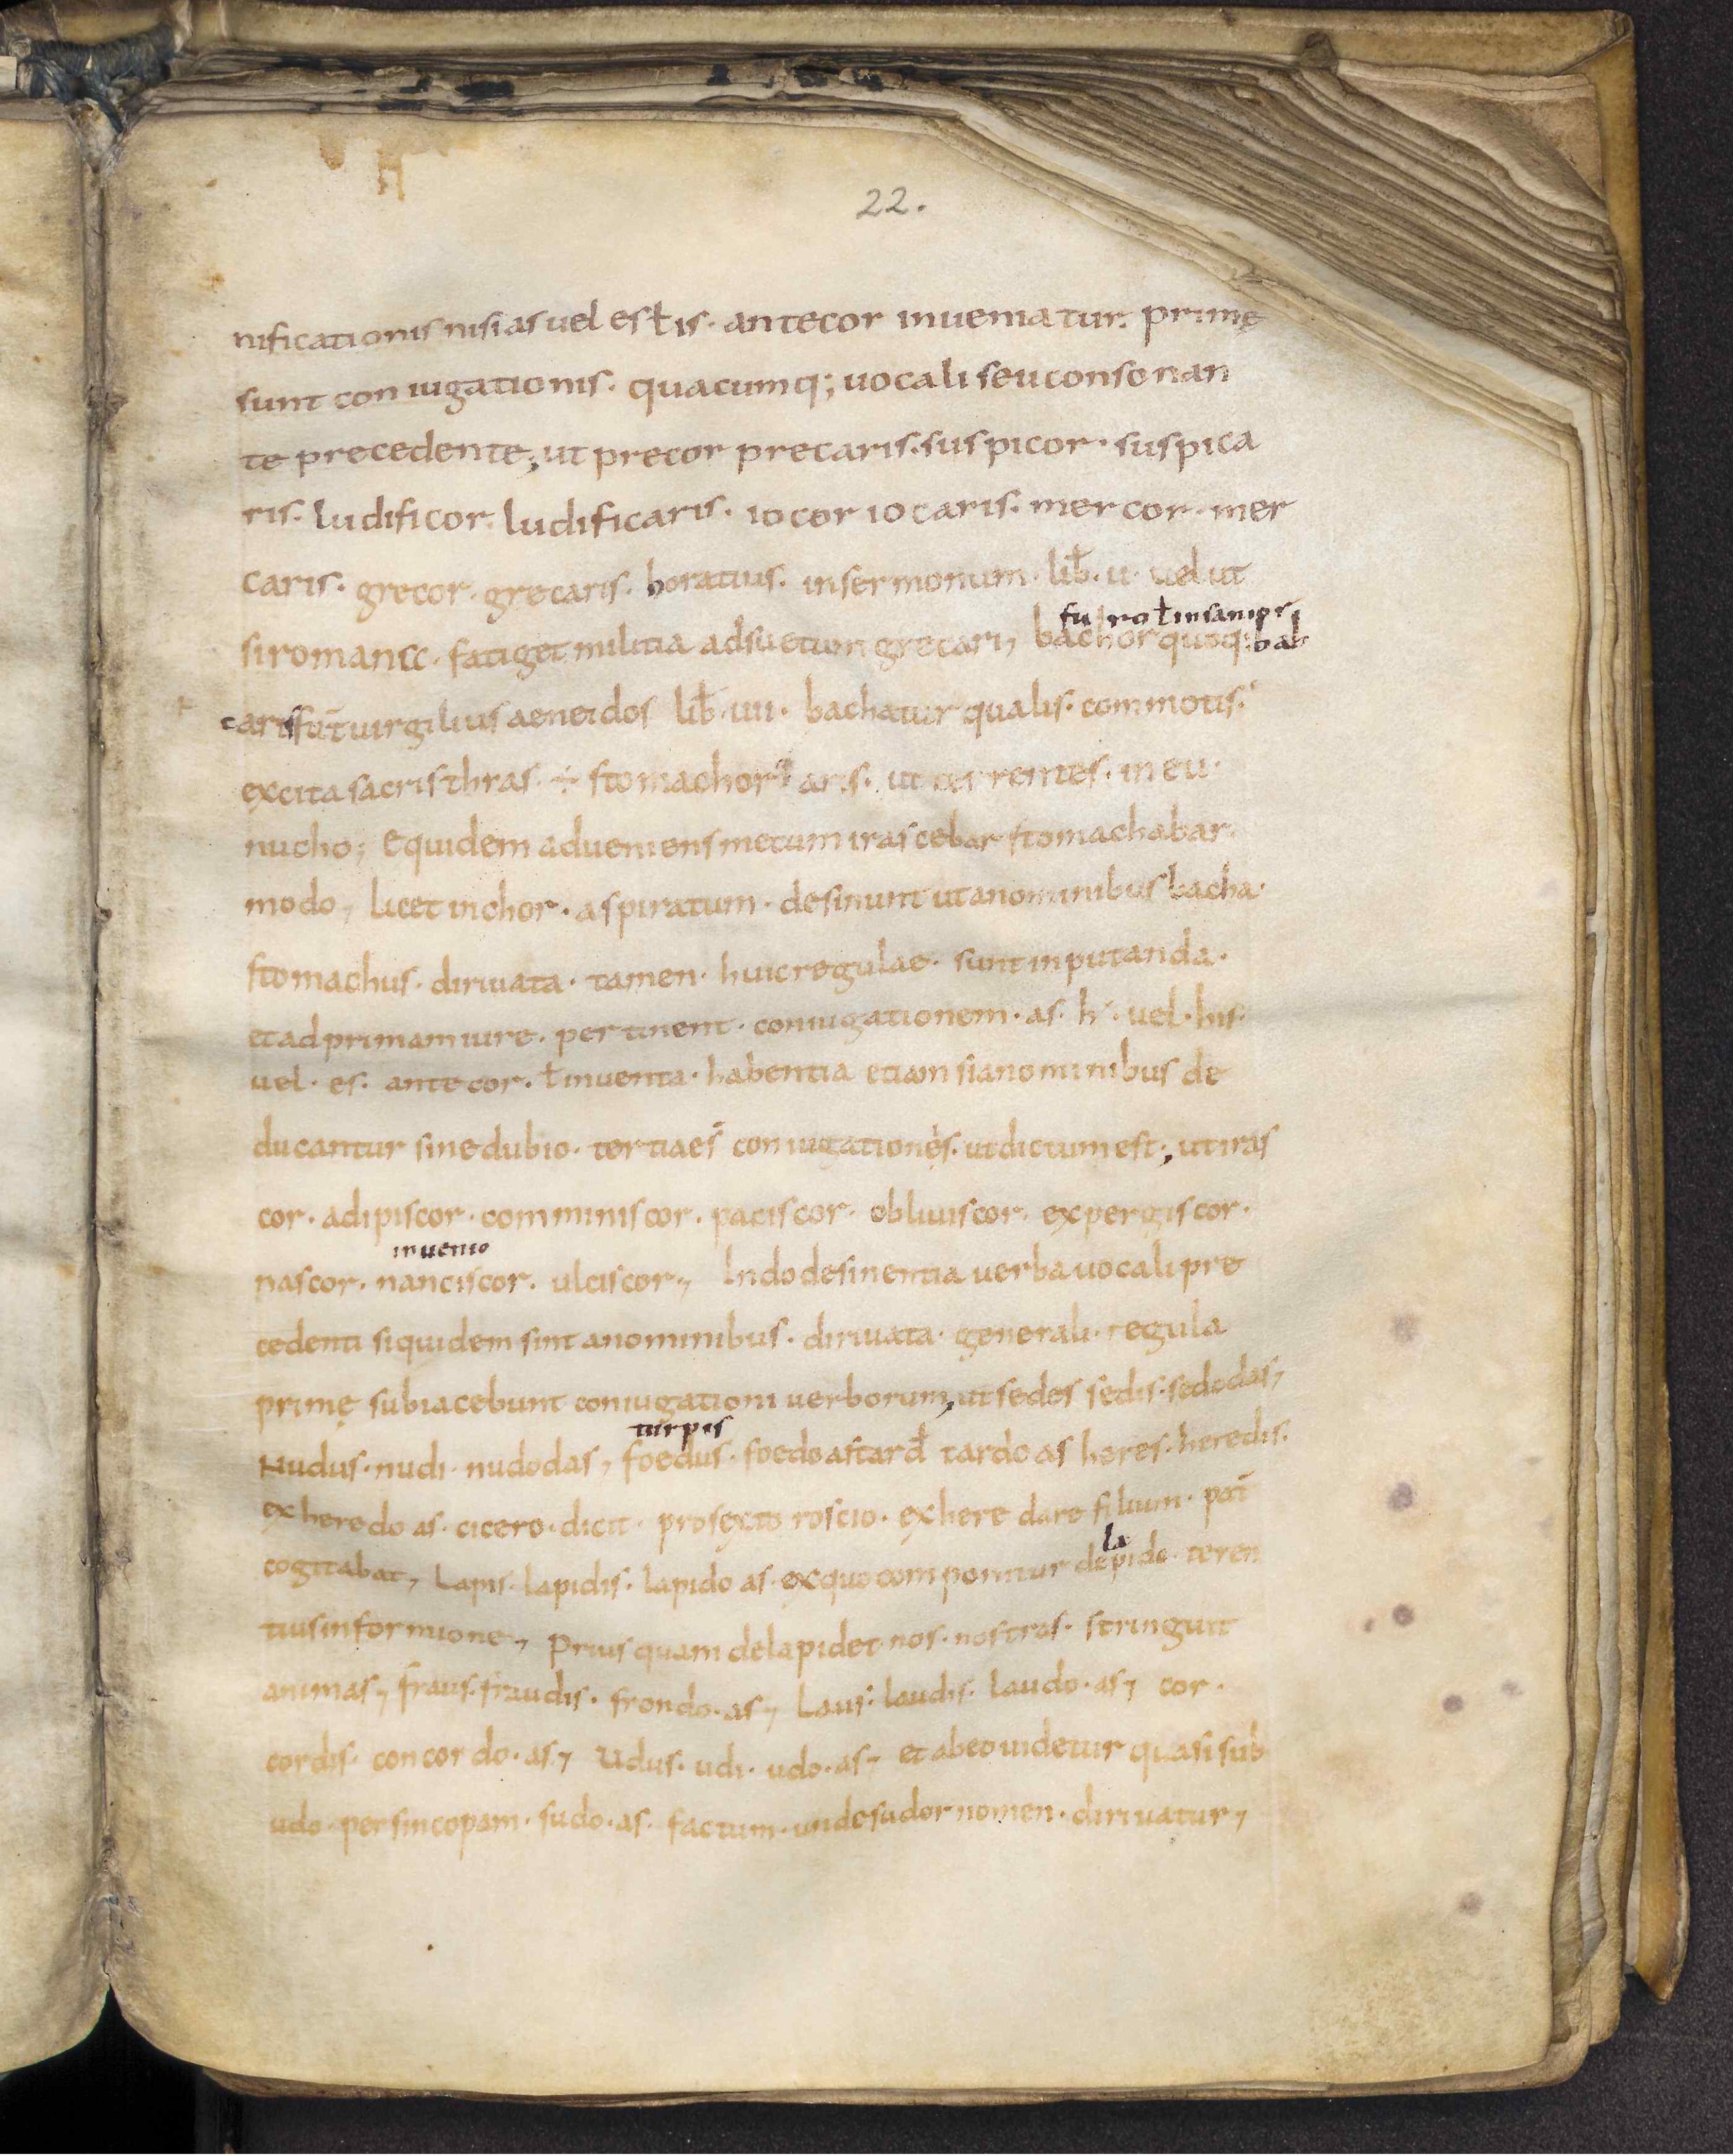 22.
nificationis nisi as uel es ł is · ante cor inueniatur · primę
sunt coniugationis · quacumq; uocali seu consonan
te precedente; ut precor precaris · suspicor · suspica
ris · ludificor · ludificaris · iocor iocaris · mercor · mer
caris · grecor · grecaris · horatius · in sermonum · lib̄ · ii · uel ut
furo ł insanio
si romana · fatiget militia adsuetum grecari, bachor quoq; bah
caris ut uirgilius aeneidos lib̄ · iiii · bachatur qualis · commotis ·
excita sacris thias ÷ stomachor aris · ut terrentes · in eu ·
nucho; equidem adueniens mecum irascebar stomachabar
modo, licet in chor · aspiratum · desinunt ut a nominibus bacha ·
stomachus · diriuata · tamen · huic regulae · sunt inputanda ·
et ad primam iure · pertinent · coniugationem · as · h · uel · his ·
uel · es · ante cor · ł inuenta · habentia etiam si a nominibus de
ducantur sine dubio · tertiae s̄ coniugationes · ut dictum est; ut iras
cor · adipiscor · comminiscor · paciscor · obliuiscor · expergiscor ·
inuenio
nascor · nanciscor · ulciscor, In do desinentia uerba uocali pre
cedenti siquidem sint a nominibus · diriuata · generali · regula
primę subiacebunt coniugationi uerborum, ut sedes sedis · sedo das,
turpis
Nudus · nudi · nudo das, foedus · foedo as tard̄ tardo as heres · heredis ·
exheredo as · cicero · dicit · pro sexto roscio · exheredare filium · pat̄
cogitabat, Lapis · lapidis · lapido as · ex quo componitur de
la
pido · teren
tius in formione, Prius quam delapidet nos · nostras · stringuit
animas, fraus · fraudis · frondo · as, Laus · laudis · laudo · as, cor ·
cordis · concordo · as, Udus · udi · udo · as, et ab eo uidetur quasi sub
udo · per sincopam · sudo · as · factum · unde sudor nomen · diriuatur,